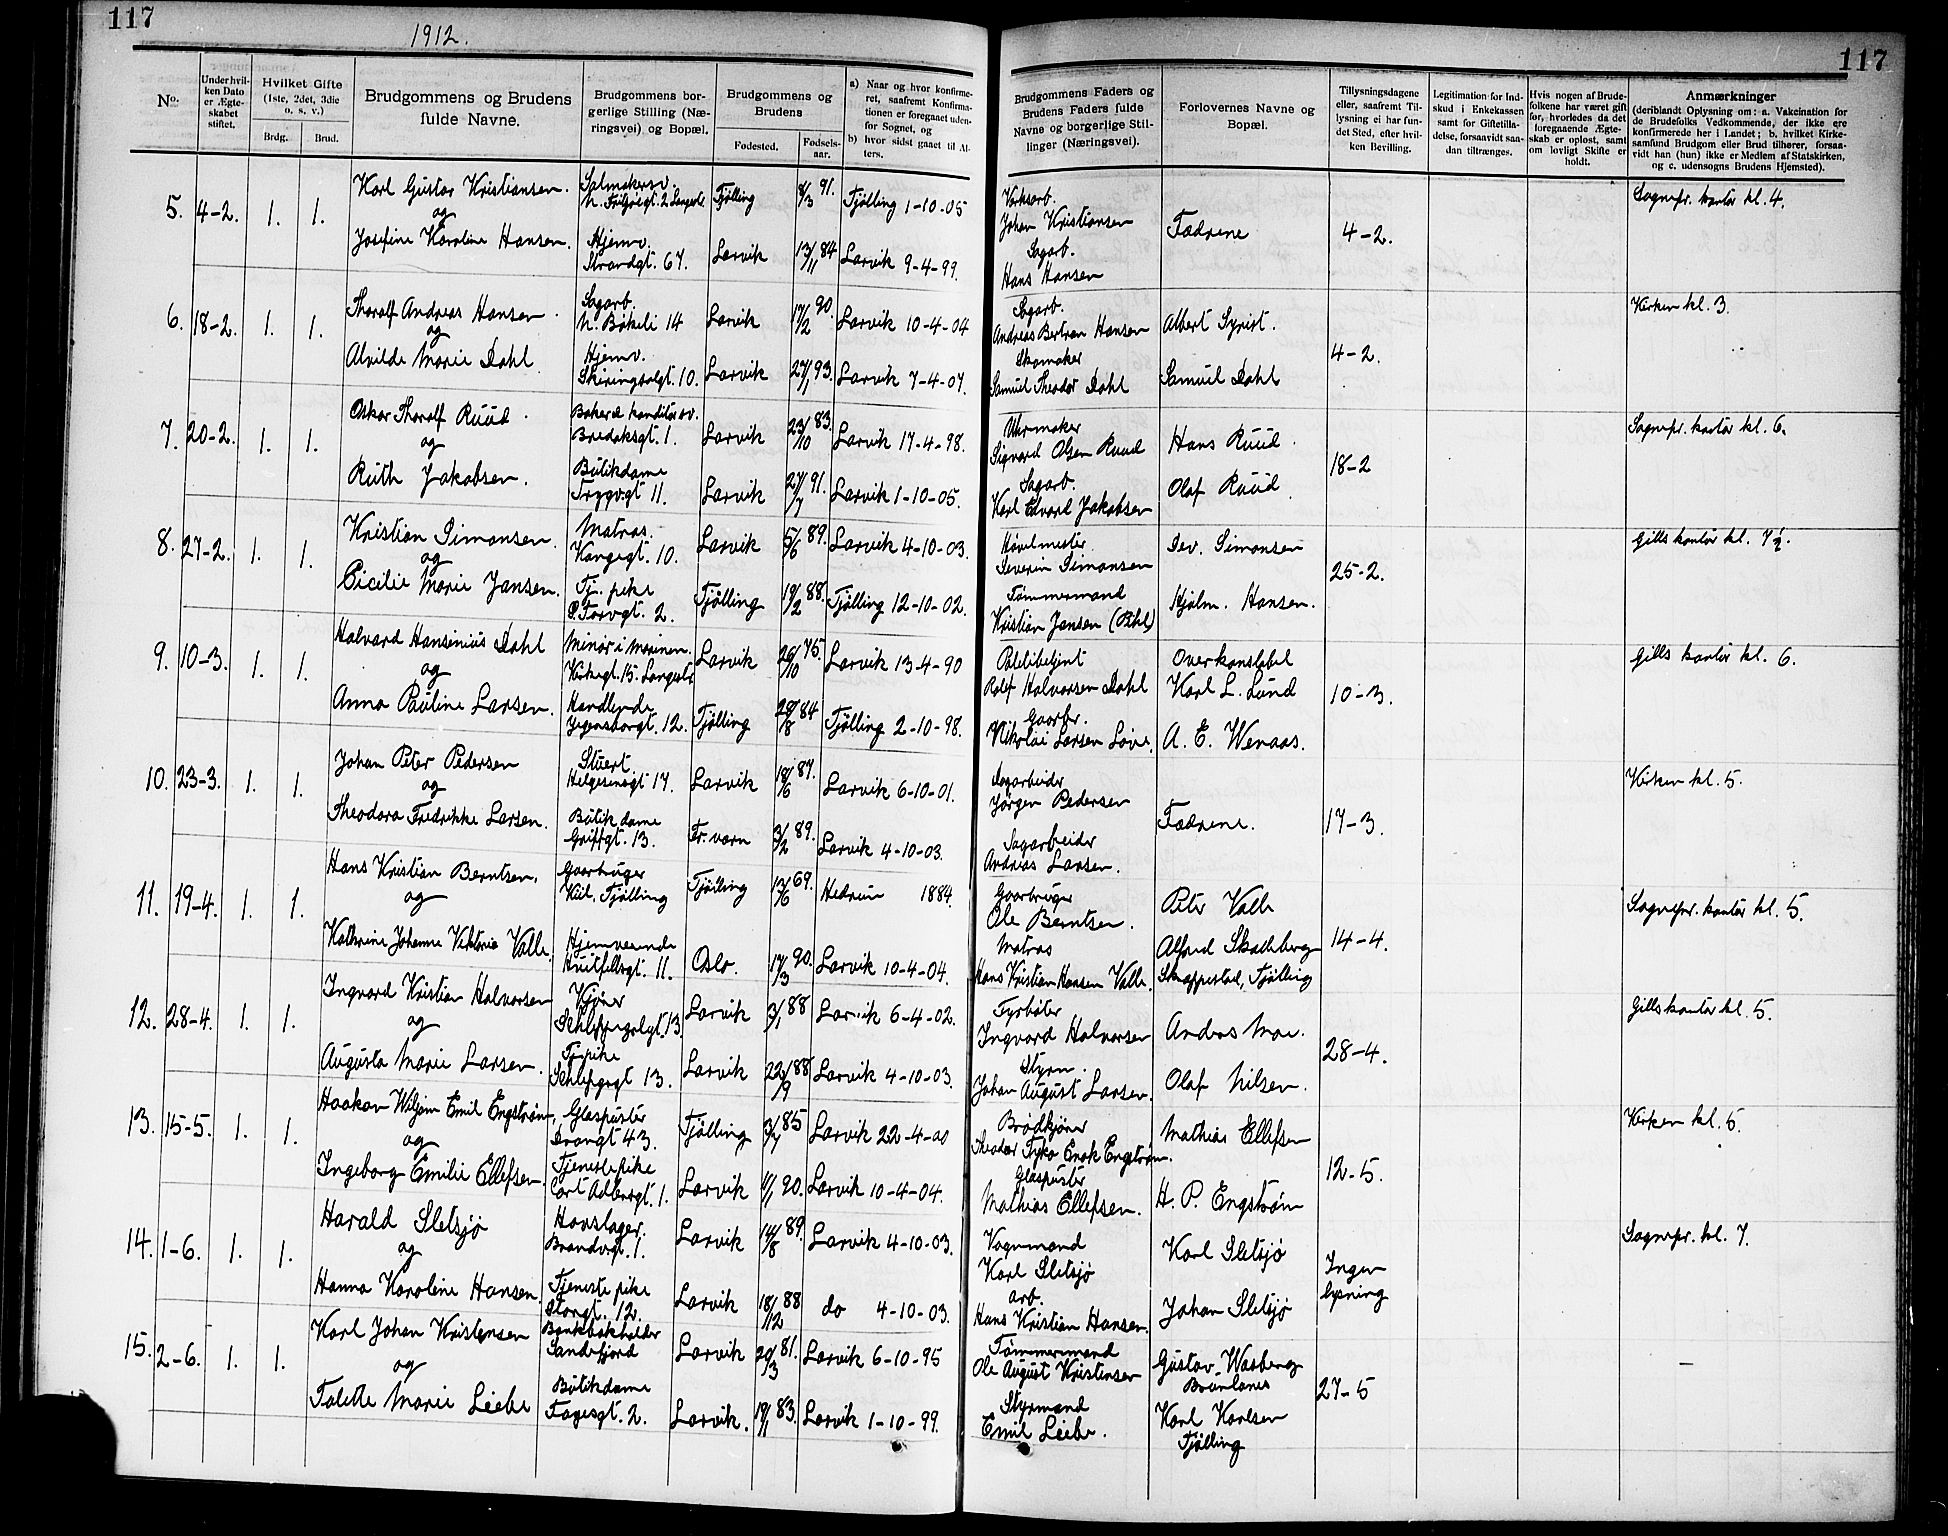 117
1912.
117
No.
Under hvilken Dato er Ægteskabet stiftet.
Hvilket Gifte (1ste, 2det, 3die o. s. v.)
Brdg.
Brud.
Brudgommens og Brudens fulde Navne.
Brudgommens borgerlige Stilling (Næringsvei) og Bopæl.
Brudgommens og Brudens
Fødested.
Fødselsaar.
a) Naar og hvor konfirmeret, saafremt Konfirmationen er foregaaet udenfor Sognet, og
b) hvor sidst gaaet til Alters.
Brudgommens Faders og Brudens Faders fulde Navne og borgerlige Stillinger (Næringsvei).
Forlovernes Navne og Bopæl.
Tillysningsdagene eller, saafremt Tillysning ei har fundet Sted, efter hvilken Bevilling.
Legitimation for Indskud i Enkekassen samt for Giftetilladelse, forsaavidt saadan tiltrænges.
Hvis nogen af Brudefolkene har været gift før, hvorledes da det foregaaende Ægteskab er opløst, samt om lovligt Skifte er holdt.
Anmærkninger
(deriblandt Oplysning om: a. Vakcination for de Brudefolks Vedkommende, der ikke ere konfirmerede her i Landet; b. hvilket Kirkesamfund Brudgom eller Brud tilhører, forsaavidt han (hun) ikke er Medlem af Statskirken, og c. udensogns Brudens Hjemsted).
5. 4-2. 1. 1. Karl Gustav Kristiansen. Salmakersv. Tjølling 8/3 91. Tjølling 1-10-05 Verksarb. Johan Kristiansen Fædrene 4-2. Sognepr. kontor kl. 4.
og
Josefine Karoline Hansen. Hjemv. Strandgt. 67. Larvik 13/11 84 Larvik 9-4-99. Sagarb. Hans Hansen
6. 18-2. 1. 1. Thoralf Andreas Hansen. Sagarb. N. Bøkeli 14 Larvik 17/2 90. Larvik 10-4-04 Sagarb. Andreas Bertran Hansen Albert Syrist. 4-2. Kirken kl. 3.
og
Alvilde Marie Dahl Hjemv. Skiringsalgt. 10. Larvik 27/1 93. Larvik 7-4-07. Skomaker Samuel Theodor Dahl Samuel Dahl
7. 20-2. 1. 1. Oskar Thoralf Ruud. Baker & konditor sv. Bredoksgt. 1. Larvik 23/10 83. Larvik 17-4-98. Uhrmaker Sigvard Olsen Ruud Hans Ruud. 18-2 Sognepr. kontor kl. 6.
og
Ruth Jakobsen. Butikdame Trygvgt. 11. Larvik 27/7 91. Larvik 1-10-05. Sagarb. Karl Edvard Jakobsen Olaf Ruud.
8. 27-2. 1. 1. Kristian Simonsen. Matros. Kongegt. 10. Larvik 5/6 89. Larvik 4-10-03. Høvelmester. Severin Simonsen Sev. Simonsen 25-2. Gills kontor kl. 7½.
og
Cicilie Marie Jansen. Tj. pike Ø. Torvgt. 2. Tjølling 19/2 88. Tjølling 12-10-02. Tømmermand Kristian Jansen (Bihl) Hjalm. Hansen.
9. 10-3. 1. 1. Halvard Hansinius Dahl Minør i Marinen. Kirkegt. 15. Langestr. Larvik 26/10 75. Larvik 13-4-90 Politibetjent Rolf Halvorsen Dahl Overkonstabel Karl L. Lund 10-3. Gills kontor kl. 6.
og
Anna Pauline Larsen. Handlende Jegersborgt. 12. Tjølling 28/8 84 Tjølling 2-10-98. Gaarbr. Nikolai Larsen Løve. A. E. Wenaas.
10. 23-3. 1. 1. Johan Peter Pedersen Stuert Helgesensgt 17. Larvik 18/6 87. Larvik 6-10-01. Sagarbeider Jørgen Pedersen Fædrene. 17-3. Kirken kl. 5.
og
Theodora Fredrikke Larsen. Butikdame Griffgt. 13. Fr. vern 3/2 89. Larvik 4-10-03. Sagarbeider Andreas Larsen.
11. 19-4. 1. 1. Hans Kristian Berntsen. Gaarbruger Kiil, Tjølling Tjølling 13/6 69. Hedrum 1884. Gaarbruger Ole Berntsen. Peter Valle 14-4. Sognepr. kontor kl. 5.
og
Kathrine Johanne Viktoria Valle. Hjemværende Huitfeldsgt. 11. Oslo. 17/3 90. Larvik 10-4-04. Matros Hans Kristian Hansen Valle. Alfred Skalleberg Skappestad, Tjølling
12. 28-4. 1. 1. Ingvard Kristian Halvorsen Kjører Larvik 3/1 88 Larvik 6-4-02. Fyrbøter Ingvard Halvorsen Andras Moe. 28-4. Gills kontor kl. 5.
og
Augusta Marie Larsen. Tj. pike Larvik 22/9 88 Larvik 4-10-03. Styrm. Johan August Larsen. Olaf Nilsen.
13. 15-5. 1. 1. Haakon Wiljam Emil Engstrøm. Glaspuster Drongt 43. Tjølling 3/7 85 Larvik 22-4-00 Brødkjører Theodor Fyko Enok Engstrøm. Mathias Ellefsen 12-5. Kirken kl. 5.
og
Ingeborg Emilie Ellefsen. Tjenestepike Cort Adlersgt. 1. Larvik 1/1 90. Larvik 10-4-04. Glaspuster Mathias Ellefsen. H. P. Engstrøm
14. 1-6. 1. 1. Harald Sletsjø Hovslager. Brandvgt. 1. Larvik 14/8 89. Larvik 4-10-03. Vognmand Karl Sletsjø Karl Sletsjø Ingen lysning Sognepr. kl. 7.
og
Hanna Karoline Hansen. Tjenestepike Storgt. 12. Larvik 18/12 88 do 4-10-03. arb. Hans Kristian Hansen. Johan Sletsjø
15. 2-6. 1. 1. Karl Johan Kristensen Bankbokholder Sandefjord Larvik 20/3 81. Larvik 6-10-95 Tømmermand Ole August Kristensen Gustav Wasberg Brunlanes 27-5 —
og
Talette Marie Leebe Butikdame Fagesgt. 2. Larvik. 19/1 83. Larvik 1-10-99. Styrmand Emil Leebe. Karl Karlsen Tjølling